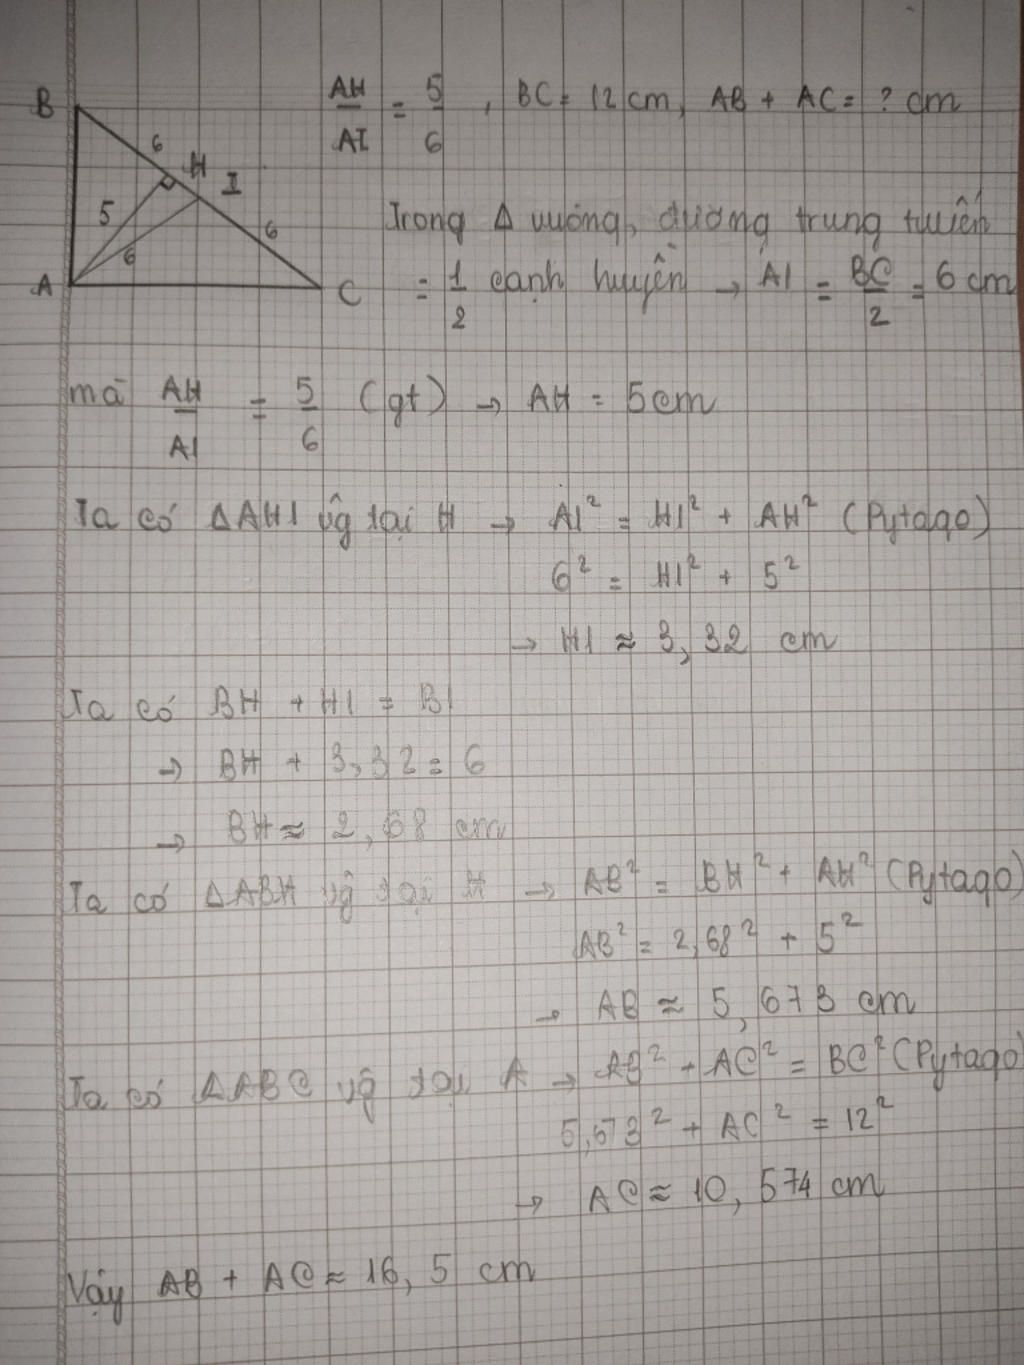 AH/AI = 5/6 , BC = 12 cm, AB + AC = ? cm
B
6
H
I
5
6
6
A
C
Trong Δ vuông, đường trung tuyến
= 1/2 cạnh huyền → AI = BC/2 = 6 cm
mà AH/AI = 5/6 (gt) → AH = 5cm
Ta có ΔAHI vg tại H → AI² = HI² + AH² (Pytago)
6² = HI² + 5²
→ HI ≈ 3,32 cm
Ta có BH + HI = BI
→ BH + 3,32 = 6
→ BH ≈ 2,68 cm
Ta có ΔABH vg tại H → AB² = BH² + AH² (Pytago)
AB² = 2,68² + 5²
→ AB ≈ 5,673 cm
Ta có ΔABC vg tại A → AB² + AC² = BC² (Pytago)
5,673² + AC² = 12²
→ AC ≈ 10,574 cm
Vậy AB + AC ≈ 16,5 cm